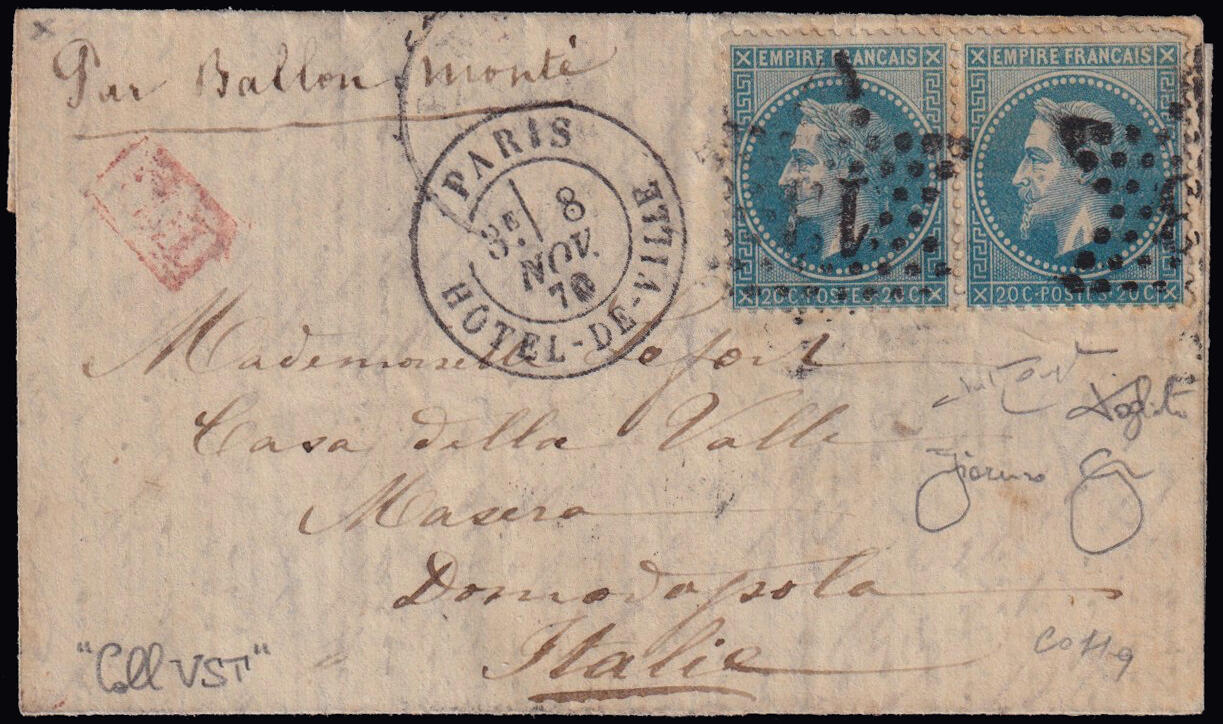 Par Ballon monté
EMPIRE FRANCAIS
EMPIRE FRANCAIS
PARIS
3E
8
NOV.
70
HOTEL-DE-VILLE
20 C-POSTES-20 C
20 C-POSTES-20 C
Mademoiselle Lefort
Casa della Valle
Masera
Domodossola
Italie
"Coll VST"